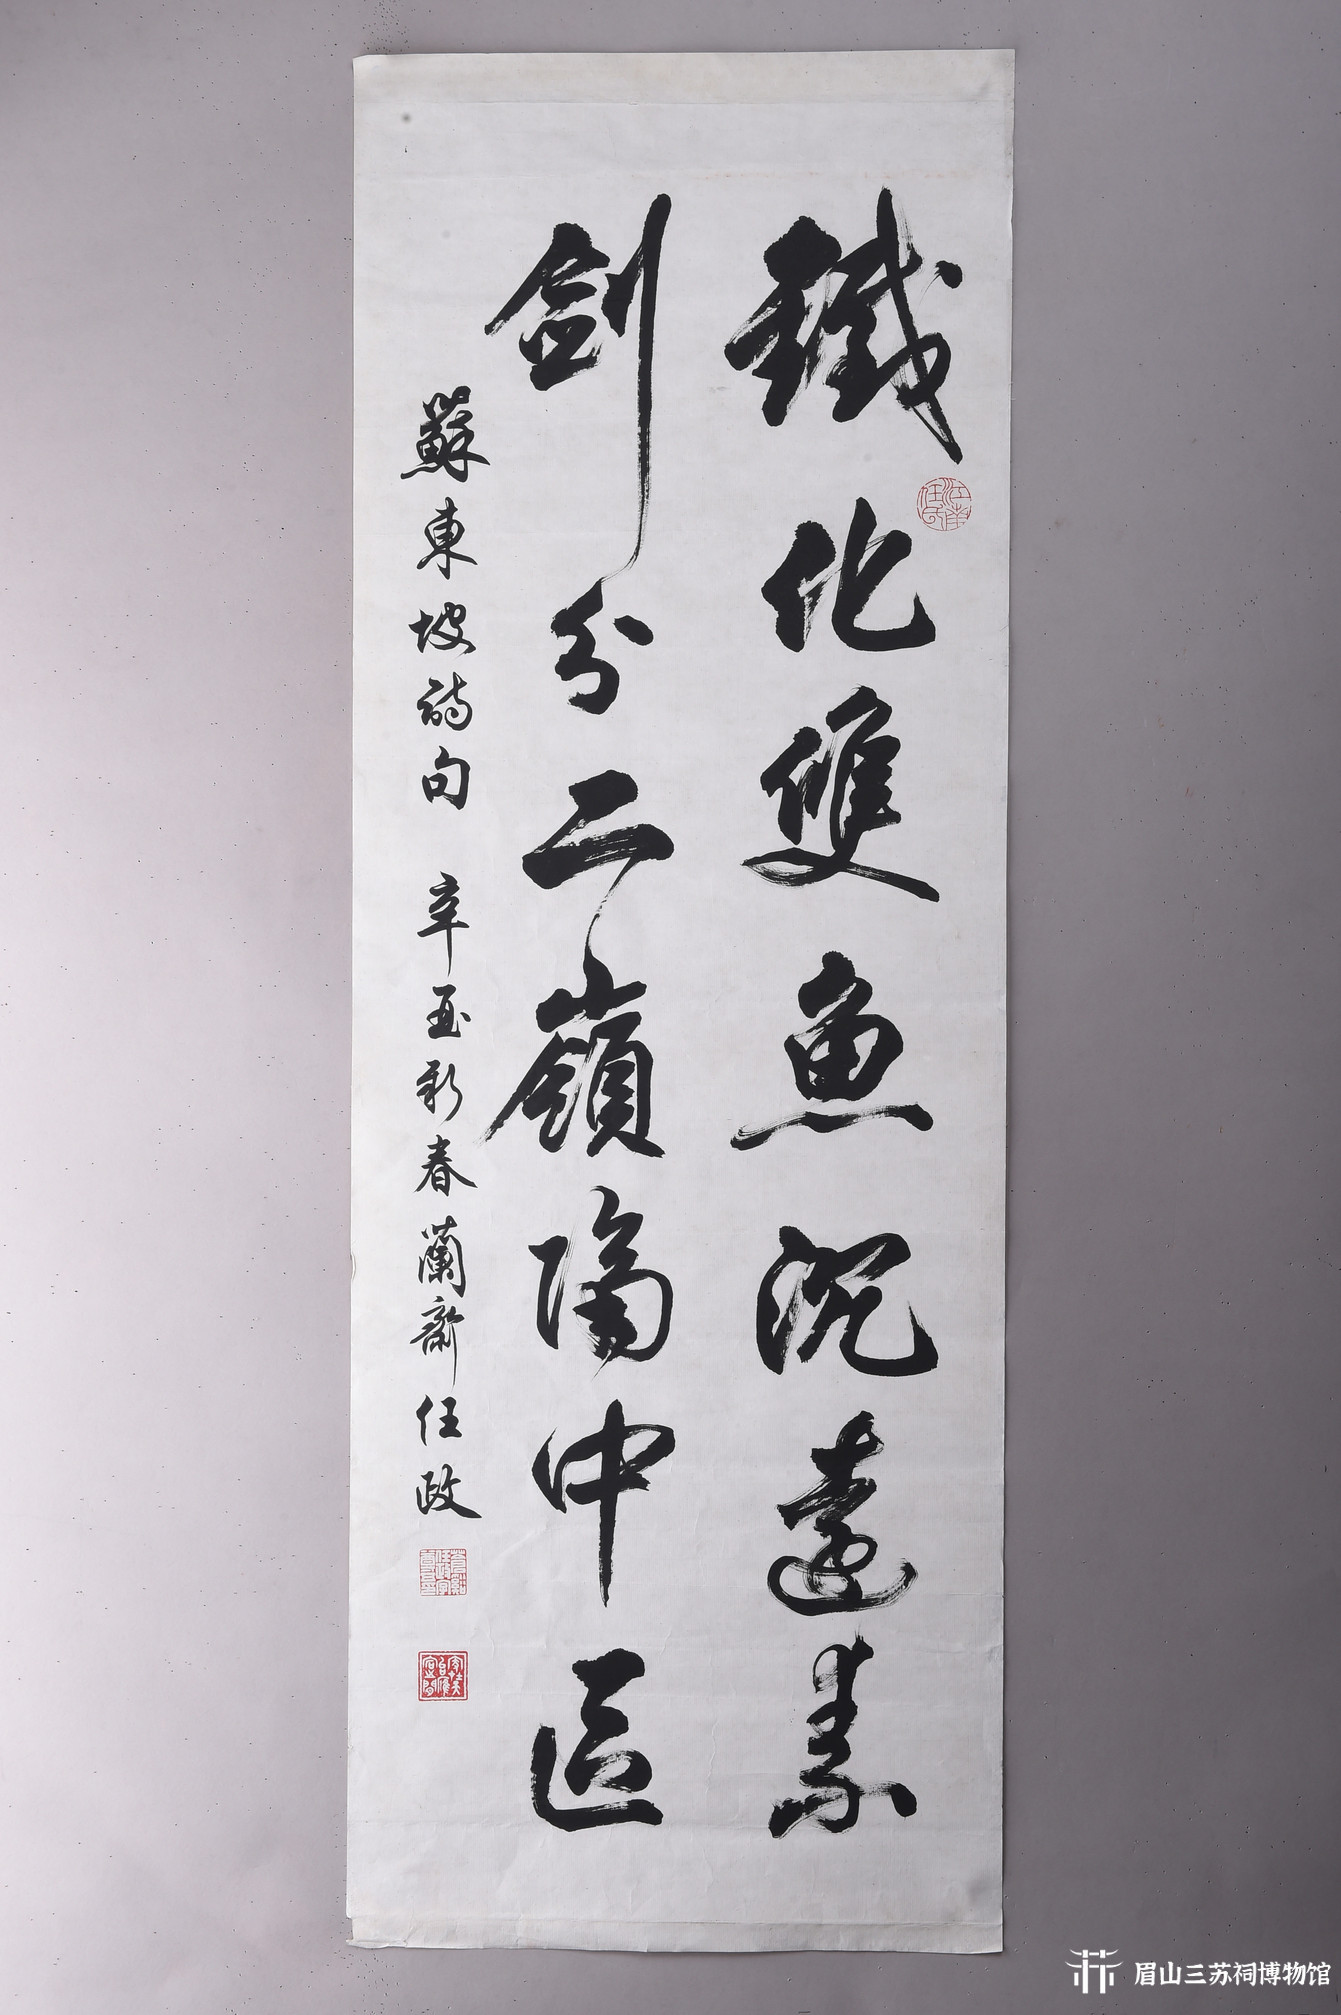 鐵化雙魚沉遠素
劍分二嶺隔中區
蘇東坡詩句 辛酉新春蘭齋任政
江南任氏
眉山三苏祠博物馆